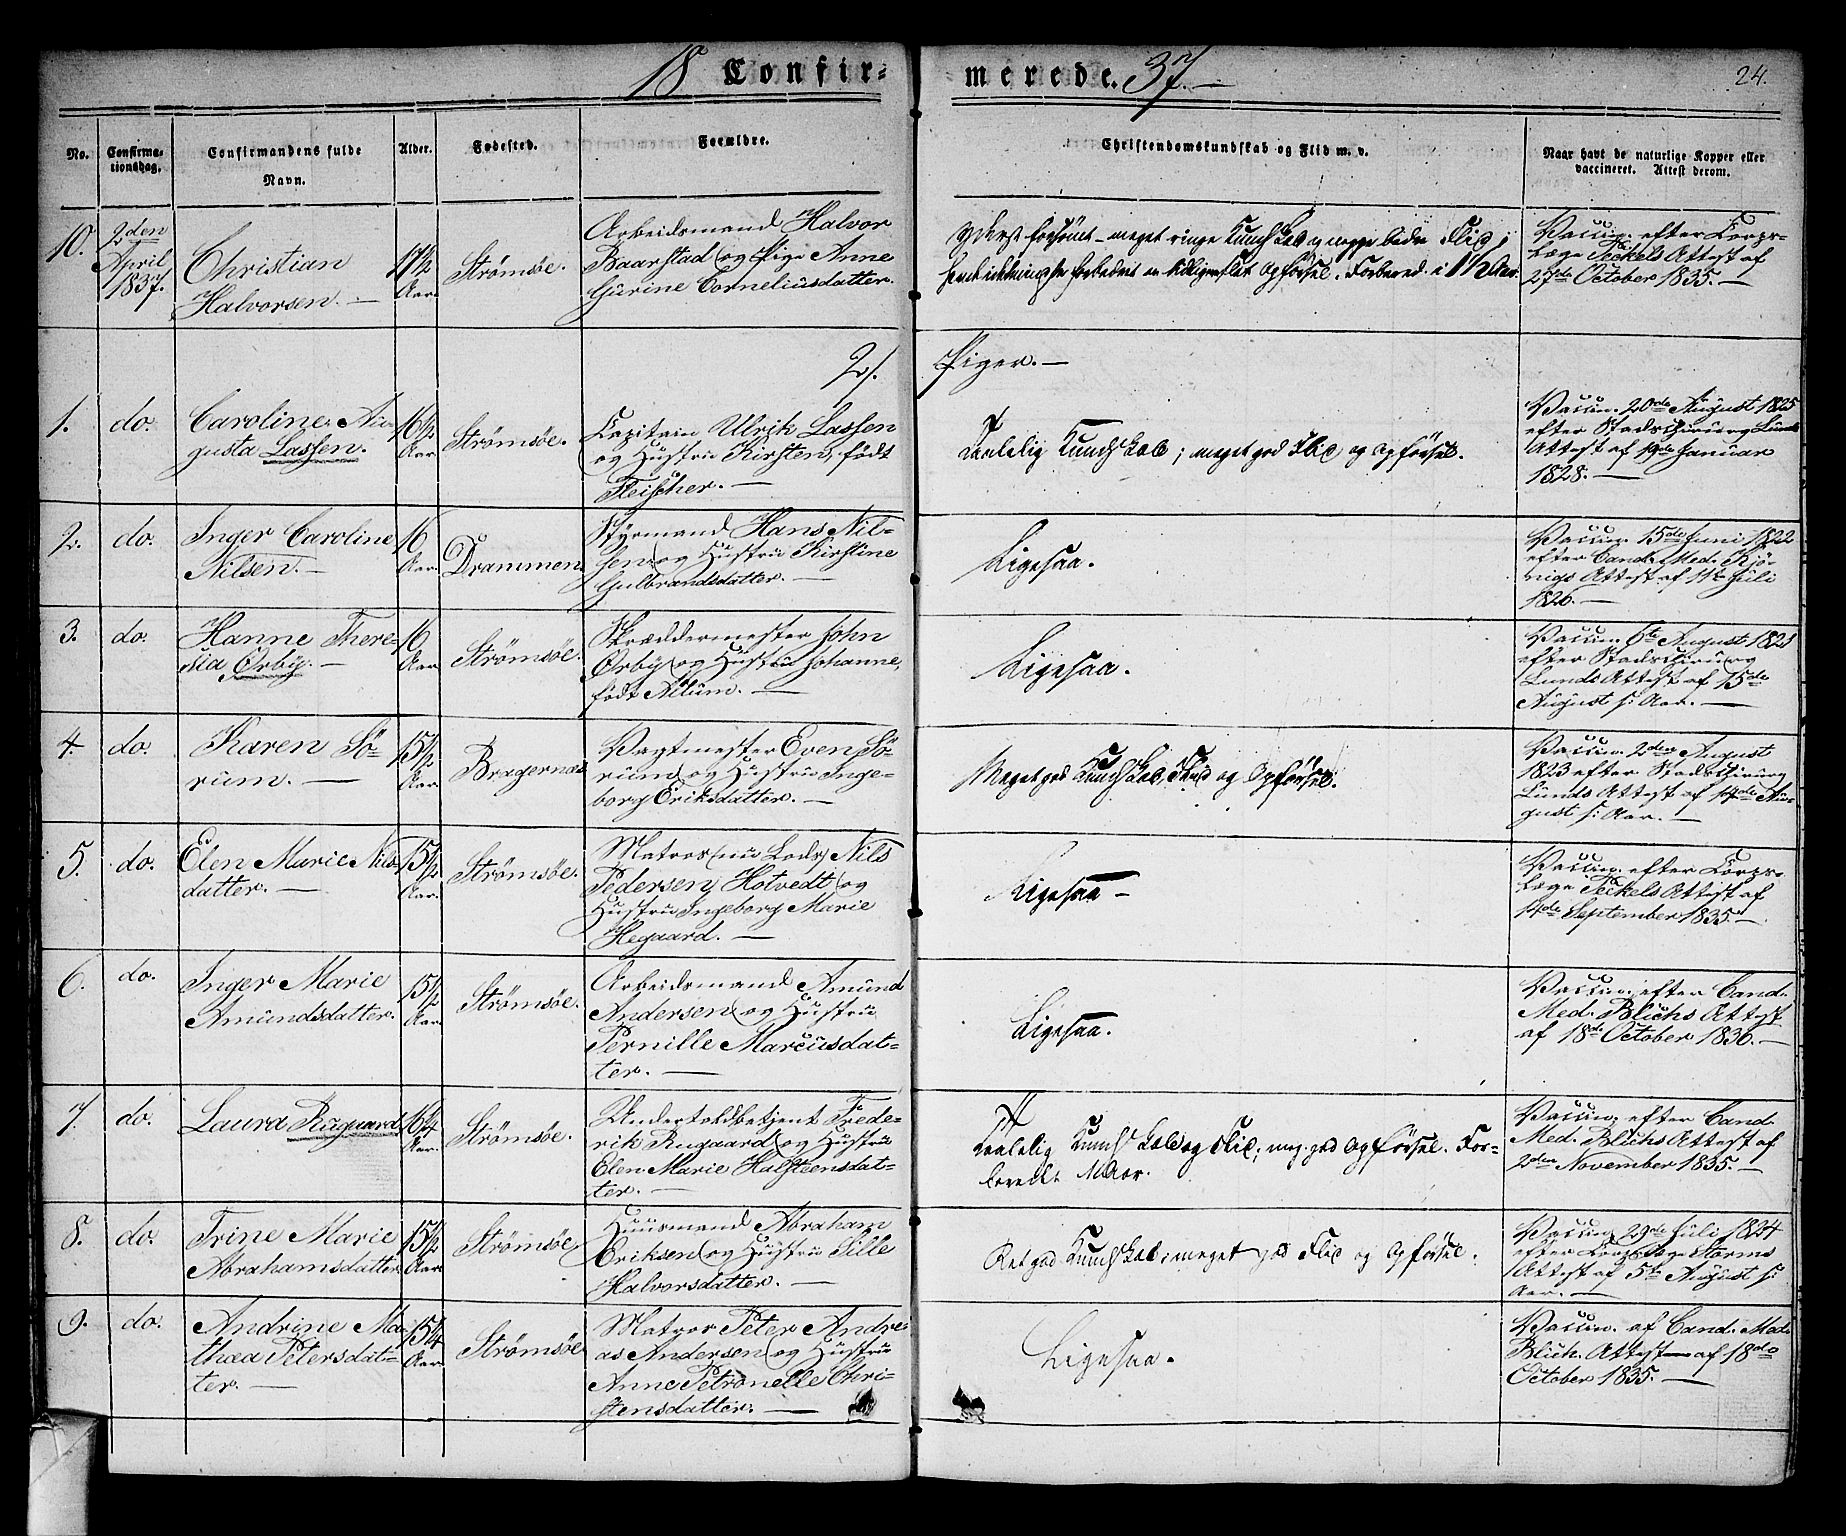 18 Confir-
merede. 37.
24.
No.
Confirma-
tionsdag.
Confirmandens fulde
Navn.
Alder.
Fødested.
Forældre.
Christendomskundskab og Flid m. v.
Naar havt de naturlige Kopper eller
vaccineret. Attest derom.
10.
2den
April
1837.
Christian
Halvorsen. —
17 1/2
Aar.
Strömsöe.
Arbeidsmand Halvor
Baarstad og Pige Anne
Gurine Corneliusdatter.
Yderst forsömt – meget ringe Kundskab og
Opförsel. Forbered. i 1 1/2 Aar.
Vaccin. efter Corps-
læge Teckels Attest af
27de October 1835. —
2/.
Piger. —
1.
do.
Caroline Au-
gusta Lassen.
16 1/2
Aar
Strömsöe.
Capitain Ulrik Lassen
og Hustru Kirsten, født
Fleischer. —
Kundskab; meget god Flid og Opförsel.
Vaccin. 20de August 1825
efter Stadschirurg Lunds
Attest af 19de Januar
1828. —
2.
do.
Inger Caroline
Nilsen. —
16
Aar.
Drammen.
Styrmand Hans Nil-
sen og Hustru Kirstine
Gulbrandsdatter. —
Ligesaa.
Vaccin. 15de Juni 1822
efter Cand. Med. Kjö-
nigs Attest af 11te Juli
1826. —
3.
do.
Hanne There-
sia Örby. —
16
Aar.
Strömsöe.
Skræddermester John
Örby og Hustru Johanne,
født Allum. —
Ligesaa.
Vaccin. 6te August 1821
efter Stadschirurg
Lunds Attest af 15de
August s: Aar. —
4.
do.
Karen Sö-
rum. —
15 1/2
Aar.
Bragernæs
Vagtmester Even Sö-
rum og Hustru Inge-
borg Eriksdatter. —
Meget god Kundskab, Flid og Opförsel.
Vaccin. 2den August
1823 efter Stadschirurg
Lunds Attest af 14de Au-
gust s: Aar. —
5.
do.
Elen Marie Nils-
datter. —
15 1/2
Aar.
Strömsöe.
Matros (nu Lods) Nils
Pedersen Hotvedt og
Hustru Ingeborg Marie
Hegaard. —
Ligesaa —
Vaccin. efter Corps-
læge Teckels Attest af
14de September 1835. —
6.
do.
Inger Marie
Amundsdatter.
15 1/2
Aar.
Strömsöe.
Arbeidsmand Amund
Andersen og Hustru
Pernille Marcusdat-
ter. —
Ligesaa.
Vaccin. efter Cand.
Med. Blichs Attest
af 18de October 1836. —
7.
do.
Laura Rugaard
16 1/4
Aar.
Strömsöe.
Undertoldbetjent Frede-
rik Rugaard og Hustru
Elen Marie Halsteensdat-
ter. —
Kundskab og Flid; meg. god Opförsel. For-
beredt Aar.
Vaccin. efter Cand.
Med. Blichs Attest af
2den November 1835. —
8.
do.
Trine Marie
Abrahamsdatter
15 1/2
Aar.
Strömsöe
Huusmand Abraham
Eriksen og Hustru Sille
Halvorsdatter. —
Ret god Kundskab; meget god Flid og Opförsel.
Vaccin. 29de Juli 1824
efter Corpslæge Storms
Attest af 5te August s:
Aar. —
9.
do.
Andrine Ma-
thea Petersdat-
ter. —
15 1/4
Aar.
Strömsöe
Matros Peter Andre-
as Andersen og Hustru
Anne Petronelle Chri-
stensdatter. —
Ligesaa.
Vaccin. af Cand. Med.
Blich. Attest af 18de
October 1835. —